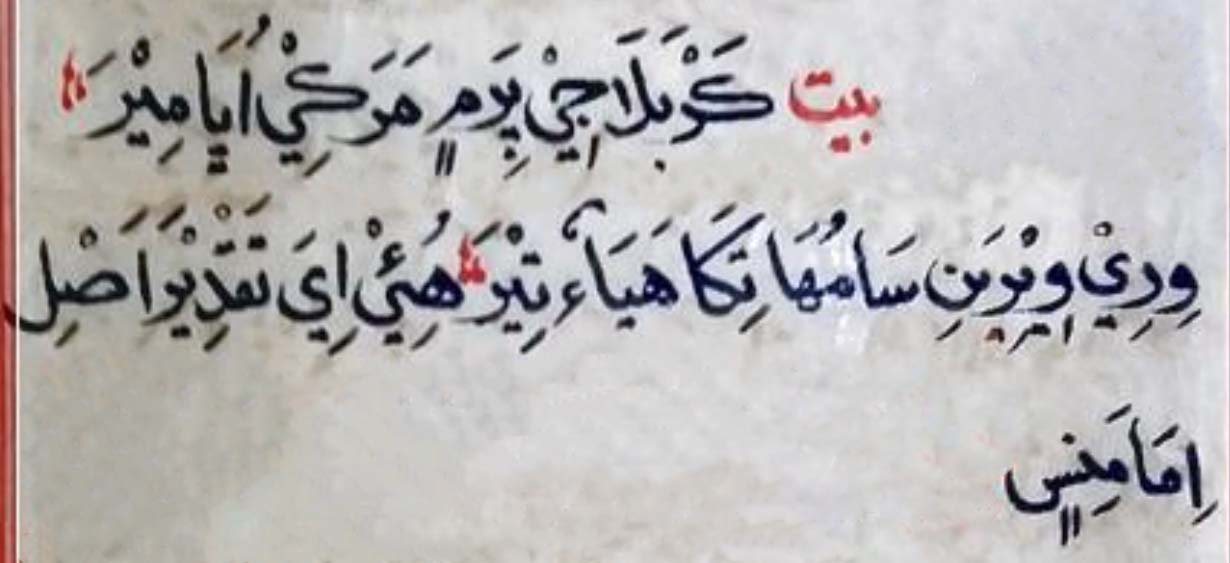 بيت كَرْبَلَا جِيْ پِرَمٍ مَرَكِيْ اُيَا مِيْرَ"
وِدِيْ وِيْرِيَنِ سَامُهَا تِكَا هَيَاءَ تِيْرَ" هُئِيْ اِيَ تَقْدِيْرَ اَصْلِ
اِمَامَنِسٍ